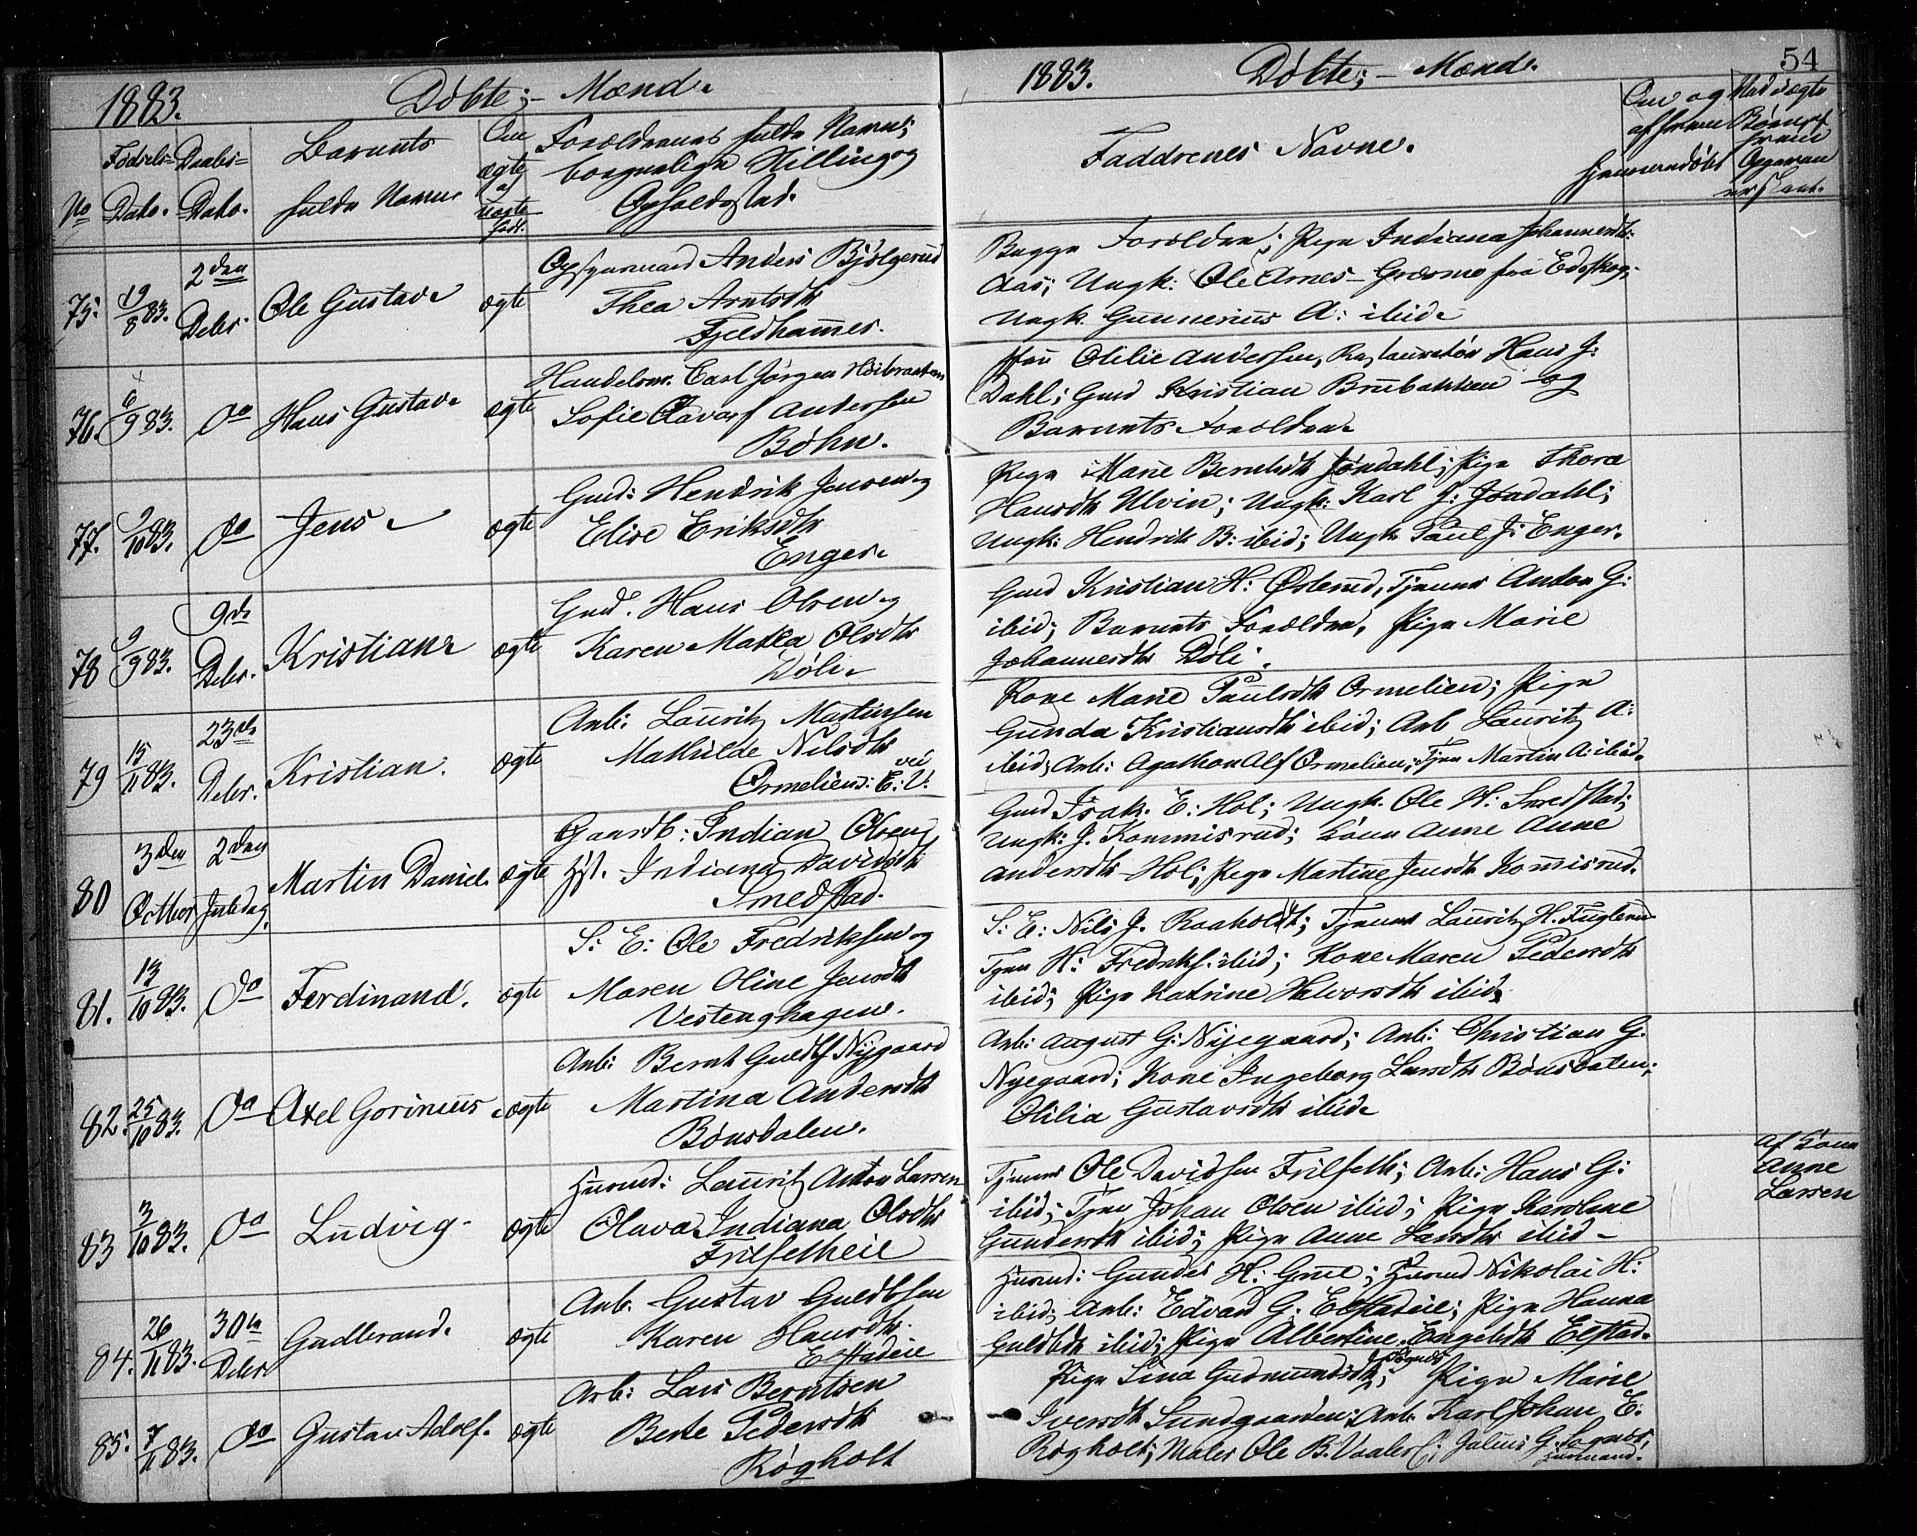 1883. Døbte; – Mænd.
No
Fødsels-
Dato.
Daabs-
Dato.
Barnets
fulde Navne
Om
ægte
el
uægte
født.
Forældrenes fulde Navne,
borgerlige Stilling og
Opholdssted.
75. 19/8 83. 2den Debr. Ole Gustav. ægte
Opsynsmand Anders Bjølgerud
Thea Arntsdtr
Fjeldhammer.
76. 6/9 83. Do Hans Gustav. ægte
Handelsm. Carl Jørgen Høibraaten
Sofie Olava Andersen
Bøhn.
77. 9/10 83. Do Jens. ægte
Gmd: Hendrik Jensen og
Elise Eriksdtr
Enger.
78 9/9 83. 9de Debr. Kristian. ægte
Gmd. Hans Olsen og
Karen Mathea Olsdtr
Døli.
79 15/11 83. 23de Debr. Kristian. ægte
Arb: Lauritz Martinsen
Mathilde Nilsdtr
Ormelien: E: V: vei
80 3den Octber 2den Juledag. Martin Daniel. ægte
Gaardb: Indian Olsen,
Hst. Indiana Davidsdtr
Smedstad.
81. 13/10 83. Do Ferdinand. ægte
S: E: Ole Fredriksen og
Maren Oline Jensdtr
Vestenghagen.
82. 25/10 83. Do Axel Gorinius. ægte
Arb: Bernt Guldbs Nygaard
Martina Andersdtr
Bønsdalen.
83 3/10 83. Do Ludvig. ægte
Husmd: Lauritz Anton Larsen
Olava Indiana Olsdtr
Frilseteie
84. 26/11 83. 30te Debr Gudbrand. ægte
Arb. Gustav Guldbsen
Karen Hansdtr.
Elstadeie
85. 7/11 83. Do Gustav Adolf. ægte
Arb: Lars Berntsen
Berte Pedersdtr
Røgholt
1883. Døbte; – Mænd. 54
Faddrenes Navne.
Om og
af hvem
hjemmedøbt
Ved uægte
Børn af
hvem
Opgaven
er skeet.
Begge Forældre; Pige Indiana Johannesdtr:
Aas; Ungk: Ole Arnes – Græsmo fra Edskog;
Ungk. Gunnerius A: ibid.
Fru Otilie Andersen, Restauratør Hans J:
Dahl; Gmd Kristian Brubakken og
Barnets Forældre.
Pige Marie Berntsdtr Jøndahl; Pige Thora
Hansdtr Ulvin; Ungk: Karl J: Jøndahl;
Ungk: Hendrik B: ibid; Ungk Paul J: Enger.
Gmd Kristian H: Østerud, Tjener Anton G:
ibid; Barnets Forældre, Pige Marie
Johannesdtr Døli.
Kone Marie Paulsdtr Ormelien; Pige
Gunda Kristiansdtr ibid; Arb Lauritz A:
ibid; Arb: Agathon Alf Ormelien; Tjen Martin A: ibid.
Gmd Isak. E: Hol; Ungk. Ole H: Smedstad;
Ungk: J. Kommisrud; Kone Anne Anne
Andersdtr Hol; Pige Martine Jensdtr Komisrud.
S: E: Nils J. Raaholdt; Tjener Lauritz H. Fuglerud
Tjen H: Fredriks. ibid; Kone Maren Pedersdtr
ibid; Pige Katrine Halvorsdtr ibid.
Arb: August G: Nyegaard; Arb: Christian G.
Nyegaard; Kone Ingeborg Larsdtr Bønsdalen;
Otilia Gustavsdtr ibid.
Tjener Ole Davidsen Frilseth; Arb: Hans G:
ibid; Tjen Johan Olsen ibid; Pige Karoline
Gundersdtr ibid; Pige Anne Larsdtr ibid –
af Kone
Anne
Larsen
Husmd: Gunder H: Grue; Husmd Nikolai H:
ibid; Arb: Edvard G. Elstadeie; Pige Hanna
Guldbdtr ibid; Pige Albertine Engebdtr Elstad.
Pige Lina Gudmundsdtr; Pige Marie
Iversdtr Sundgaarden; Arb. Karl Johan E:
Røgholt; Maler Ole B. Vaaler; Julius G. Sognes,
Husmand.